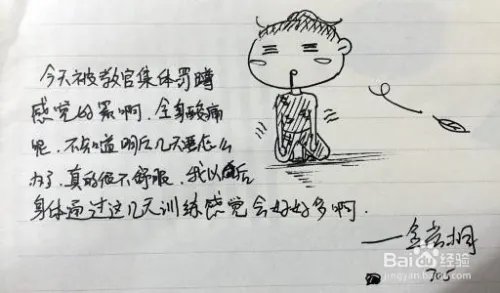 今天被教官集体罚蹲
感觉好累啊，全身酸痛
呢，不知道明后几天要怎么
办了，真的很不舒服，我以后
身体通过这几天训练感觉会好好多啊．
Baidu经验
jingyan.baidu.com